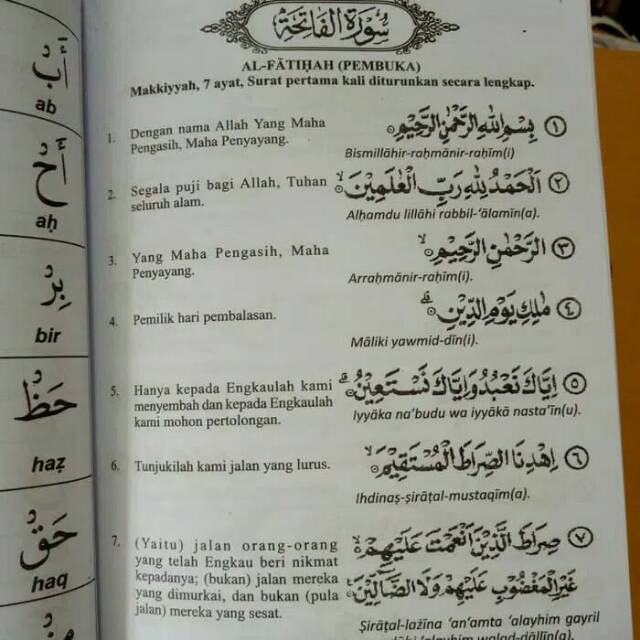 أَبْ
ab
أَحْ
aḥ
بِرْ
bir
حَظْ
haẓ
حَقْ
haq
سُورَةُ الْفَاتِحَةِ
AL-FĀTIḤAH (PEMBUKA)
Makkiyyah, 7 ayat, Surat pertama kali diturunkan secara lengkap.
1. Dengan nama Allah Yang Maha
Pengasih, Maha Penyayang.
بِسْمِ اللّٰهِ الرَّحْمٰنِ الرَّحِيْمِ ١
Bismillāhir-raḥmānir-raḥīm(i)
2. Segala puji bagi Allah, Tuhan
seluruh alam.
اَلْحَمْدُ لِلّٰهِ رَبِّ الْعٰلَمِيْنَۙ ٢
Alḥamdu lillāhi rabbil-‘ālamīn(a).
3. Yang Maha Pengasih, Maha
Penyayang.
الرَّحْمٰنِ الرَّحِيْمِۙ ٣
Arraḥmānir-raḥīm(i).
4. Pemilik hari pembalasan.
مٰلِكِ يَوْمِ الدِّيْنِۗ ٤
Māliki yawmid-dīn(i).
5. Hanya kepada Engkaulah kami
menyembah dan kepada Engkaulah
kami mohon pertolongan.
اِيَّاكَ نَعْبُدُ وَاِيَّاكَ نَسْتَعِيْنُۗ ٥
Iyyāka na’budu wa iyyākā nasta’īn(u).
6. Tunjukilah kami jalan yang lurus.
اِهْدِنَا الصِّرَاطَ الْمُسْتَقِيْمَۙ ٦
Ihdinaṣ-ṣirāṭal-mustaqīm(a).
7. (Yaitu) jalan orang-orang
yang telah Engkau beri nikmat
kepadanya; (bukan) jalan mereka
yang dimurkai, dan bukan (pula
jalan) mereka yang sesat.
صِرَاطَ الَّذِيْنَ اَنْعَمْتَ عَلَيْهِمْ ەۙ ٧
غَيْرِ الْمَغْضُوْبِ عَلَيْهِمْ وَلَا الضَّاۤلِّيْنَ
Ṣirāṭal-lażīna ‘an‘amta ‘alayhim gayril